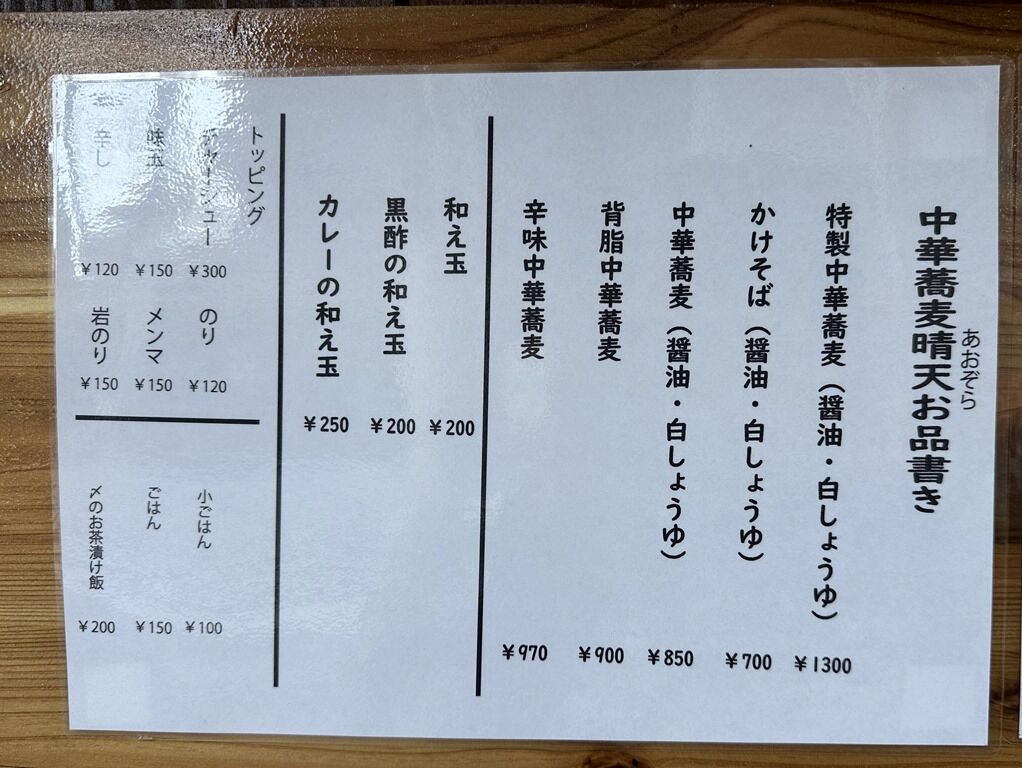 中華蕎麦晴天お品書き
あおぞら
特製中華蕎麦（醤油・白しょうゆ） ￥1300
かけそば（醤油・白しょうゆ） ￥700
中華蕎麦（醤油・白しょうゆ） ￥850
背脂中華蕎麦 ￥900
辛味中華蕎麦 ￥970
和え玉 ￥200
黒酢の和え玉 ￥200
カレーの和え玉 ￥250
トッピング
チャーシュー ￥300
味玉 ￥150
辛し ￥120
のり ￥120
メンマ ￥150
岩のり ￥150
小ごはん ￥100
ごはん ￥150
〆のお茶漬け飯 ￥200